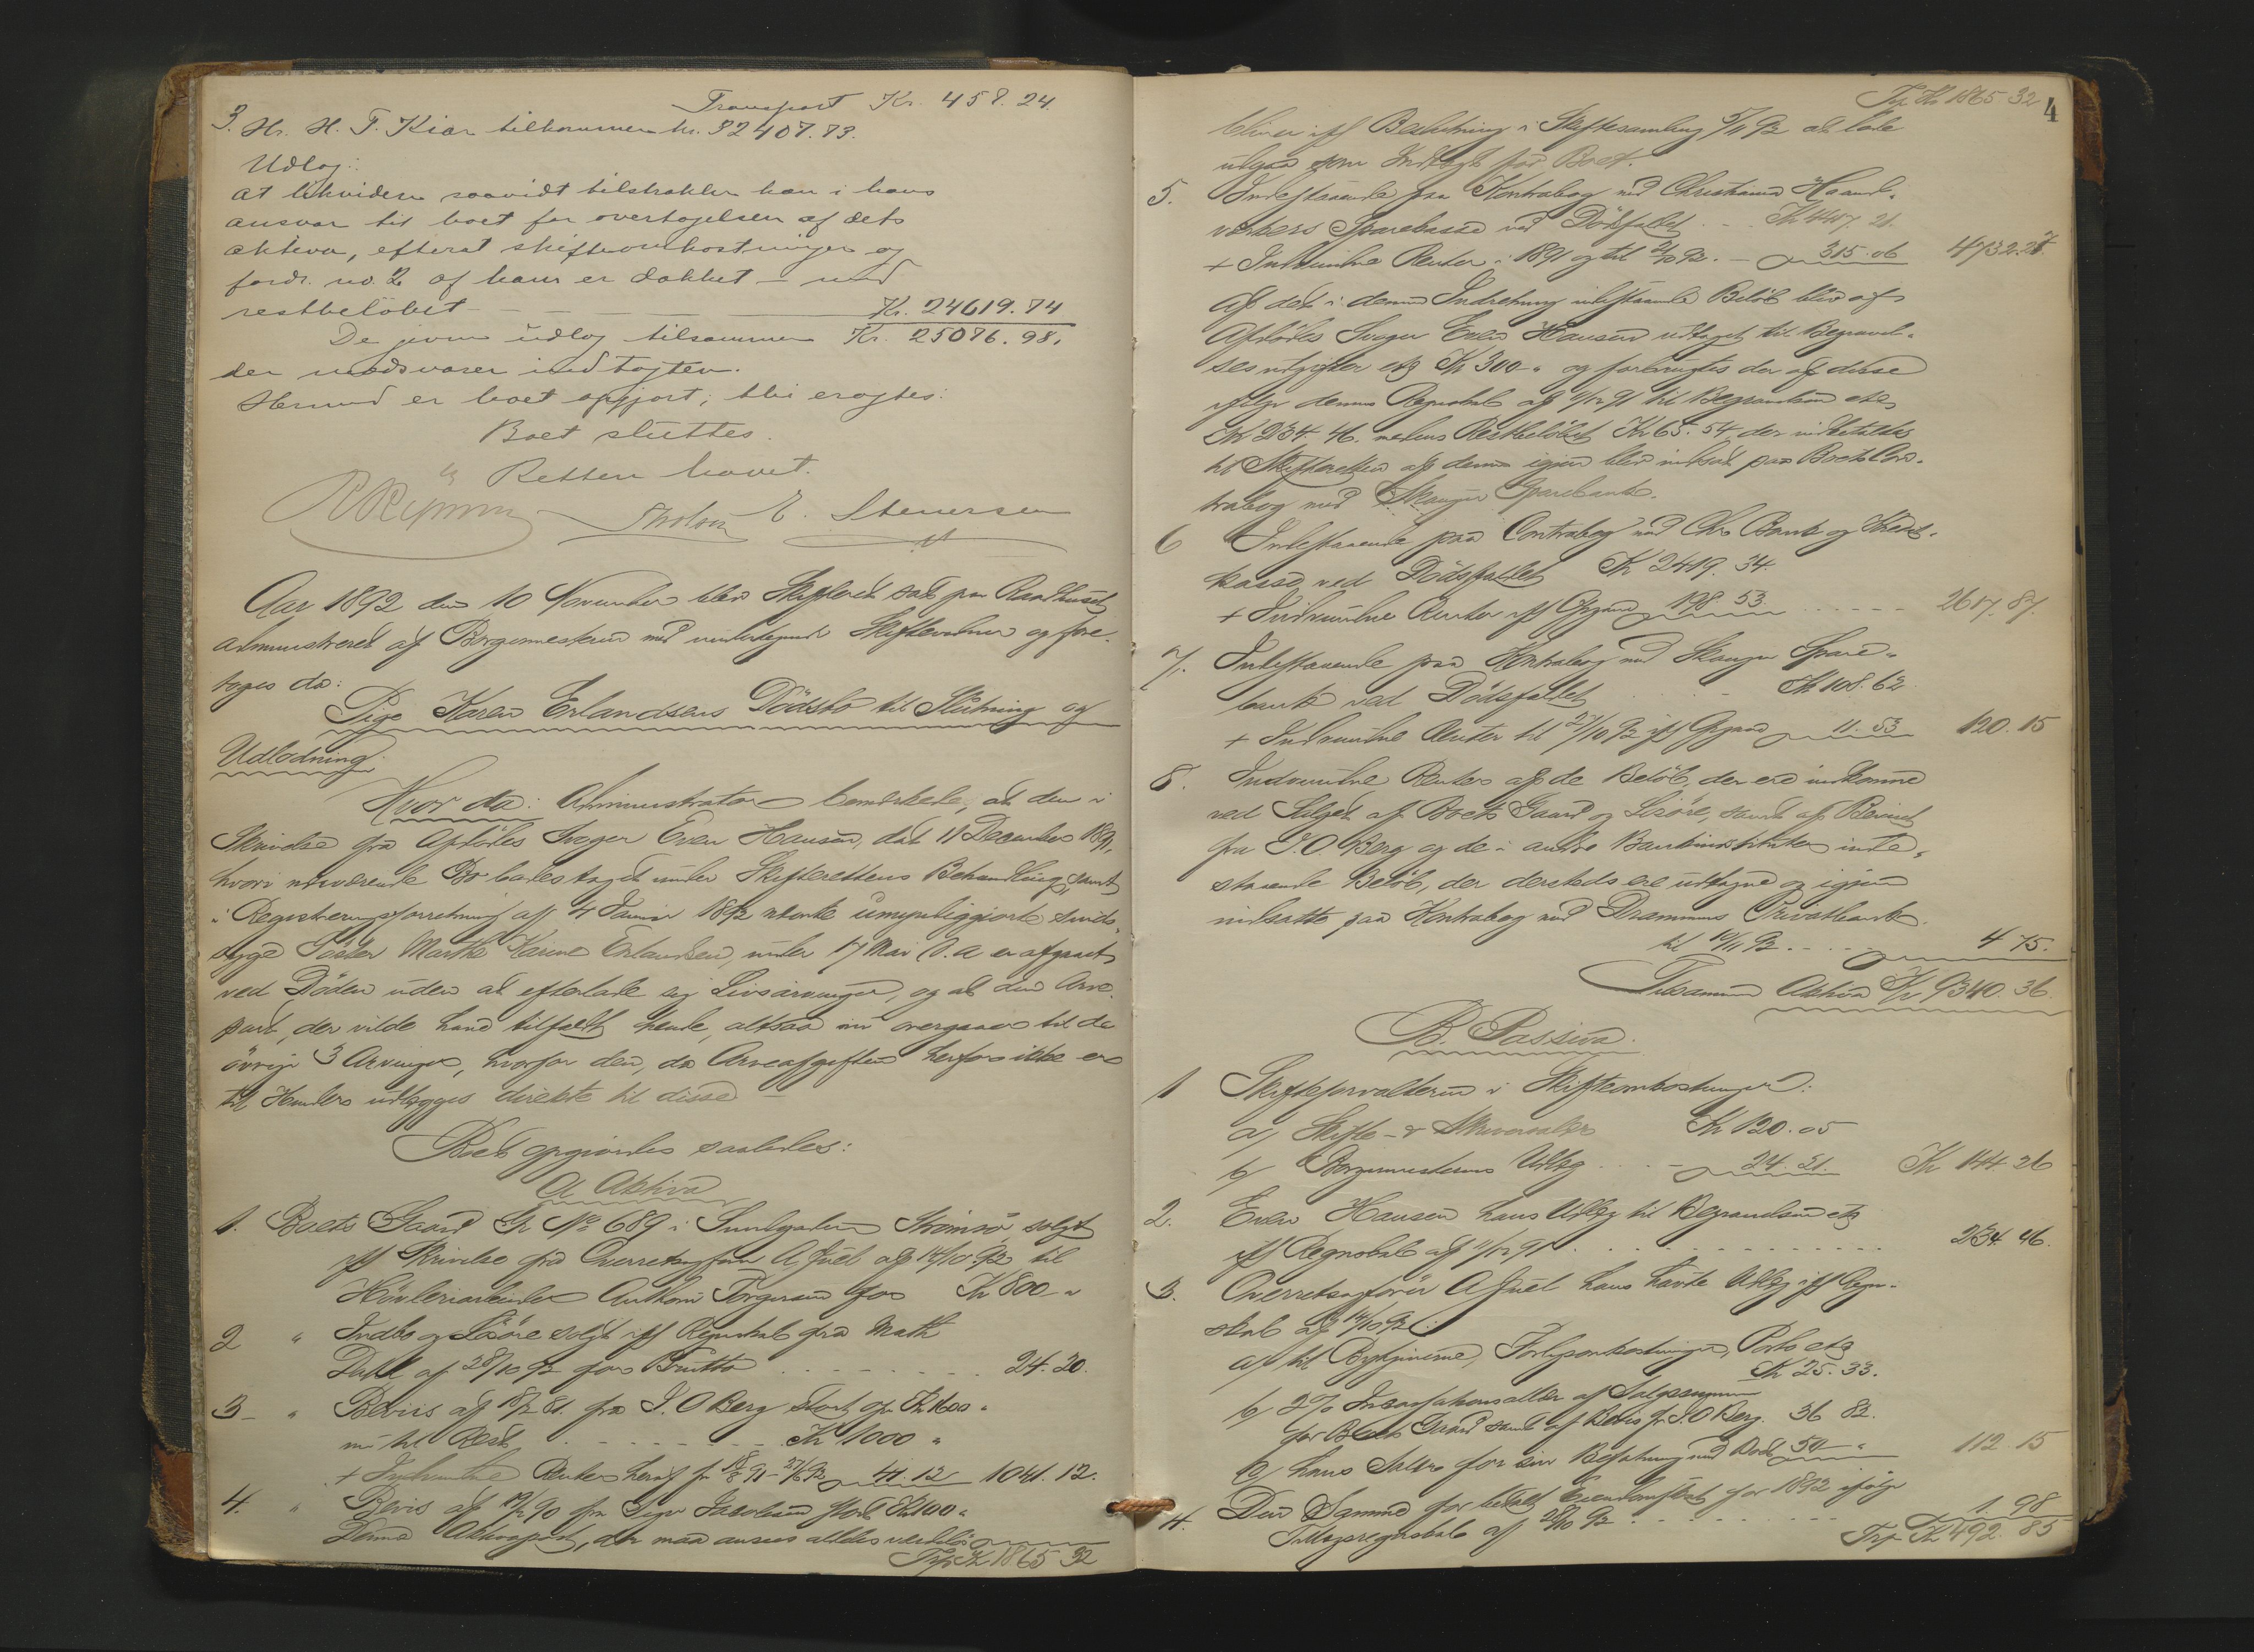 Transport Kr. 458.24.
3. Hr. H. T. Kiær tilkommer kr. 32407.73.
Udlæg:
at likvidere saavidt tilstrækker han i hans
ansvar til boet for overtagelsen af dets
aktiva, efterat skifteomkostninger og
fordr. no. 2 af ham er dækket – med
restbeløbet Kr. 24619.74
De givne udlæg tilsammen Kr. 25076.98,
der modsvarer indtægten.
Hermed er boet opgjort; thi eragtes:
Boet sluttes.
Retten hævet.
E. Stenersen
Aar 1892 den 10 November blev Skifteret sat paa Raadhuset
administreret af Borgermesteren med undertegnede Skiftevidner og fore-
toges da:
Pige Karen Erlandsens Dödsbo til Slutning og
Udlodning.
Hvor da: Administrator bemærkede, at den i
Skrivelse fra Afdödes Svoger Even Hansen, dat 11 December 1891,
hvori nærværende Bo lades taget under Skifterettens Behandling, samt
i Registreringsforretning af 4 Januar 1892 nævnte umyndiggjorte sinds-
syge Söster Marthe Karine Erlandsen, under 17 Mai d. a. er afgaaet
ved Döden uden at efterlade sig Livsarvinger, og at den Arve-
part, der vilde have tilfaldt hende, altsaa nu overgaaer til de
övrige 3 Arvinger, hvorfor den, da Arveafgiften herfor ikke er
til Hinder udlægges direkte til disse –
Boet opgjordes saaledes:
A Aktiva
1. Boets Gaard Gr No 689 i Sundgaden Strömsö, solgt
iflg Skrivelse fra Overretssagförer A Juel af 14/10 92 til
Hövleriarbeider Anthon Torgersen for Kr 800 "
2 " Indbo og Lösöre solgt iflg Regnskab fra Math
Dahl af 28/10 92 for Brutto 24.20.
3 – " Beviis af 18/2 81 fra J. O Berg stort opr Kr 1600 "
nu til Rest Kr 1000 "
+ Indvundne Renter heraf fr 18/8 91 – 41.12 1041.12.
4. " Bevis af 90 fra Jacobsen stort Kr 100 "
Denne Aktivapost, der maa ansees aldeles værdilös
Trsp Kr 1865 32
Trsp Kr 1865 32
4
bliver iflg Beslutning i Skiftesamling 5/11 92 at lade
udgaa som Indtægt for Boet.
5. Indestaaende paa Kontrabog med Christiania Haand-
værkers Sparekasse ved Dödsfaldet Kr 4417.21.
+ Indvundne Renter i 1891 og til 92. – 315.06 4732.27.
Af det i denne Indretning indestaaende Beløb blev af
Afdödes Svoger Even Hansen udtaget til Begravel-
sesudgifter etz Kr 300 " og forbrugtes der af disse
ifölge dennes Regnskab af 91 til Begravelsen etz
Kr 234.46. medens Restbelöbet Kr 65.54 der indbetaltes
til Skifteretten af denne igjen blev indsat paa Boets Con-
trabog med Skauger Sparebank.
6 Indestaaende paa Contrabog med Chr. Bank og Kredit-
kasse, ved Dödsfaldet Kr 2419.34.
+ Indvundne Renter iflg Opgave 198.53 2617.87.
7. Indestaaende paa Kontrabog med Skauger Spare-
bank ved Dödsfaldet – Kr 108.62
+ Indvundne Renter til 27/10 92 iflg Opgave 11.53 120.15
8. Indvundne Renter af de Belöb, der ere indkomne
ved Salget af Boets Gaard og Lösöre, samt af Beviset
fra J. O. Berg og de i andre Bankinstituter inde-
staaende Belöb, der dersteds ere udtagne og igjen
indsatte paa Kontrabog med Drammens Privatbank
til 10/11 92 4 75.
Tilsammen Aktiva Kr 9340.36.
B. Passiva.
1 Skifteforvalteren i Skifteomkostninger:
a/ Skifte- & Skriversalær Kr 120.05
b/ Borgermesterens Udlæg 24.21. Kr 144.26
2. Even Hansen hans Udlæg til Begravelsen etz
iflg Regnskab af 91 234.46.
3. Overretssagförer A Juel hans havte Udlæg iflg Regn-
skab af 14/10 92:
a/ til Bekjendtgj., Forligsomkostninger, Porto etz
Kr 25.33.
b/ 2% Incassationssalær af Salgssummen
for Boets Gaard samt af Bevis fr J. O Berg. 36 82.
c/ hans Salær for sin Befatning med Boet 50 " 112.15
4. Den Samme for betalt Eiendomsskat for 1892 ifölge
Tillægsregnskab af 92 1 98
Trsp Kr 492.85